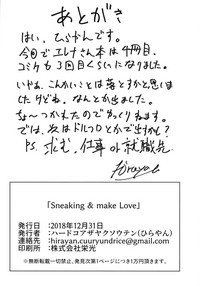 あとがき
はい、ひらやんです。
今回でエレナさん本は4冊目、
コミケも3回目くらいになりました。
いやぁ、こんかいこそは落とすかと思いま
したけどね。なんとか出ました。
ちょーつかれたのでゆっくりねます。
では、次はドルフロとかで出すかも?
P.S. 求む、仕事 or 就職先
hirayan
「Sneaking & make Love」
発行日:2018年12月31日
発行者:ハードコアザヤクソウテン(ひらやん)
連絡先:hirayan.cuuryundrice@gmail.com
印刷所:株式会社栄光
※無断転載一切禁止、発見次第1ページにつき1万円頂きます。